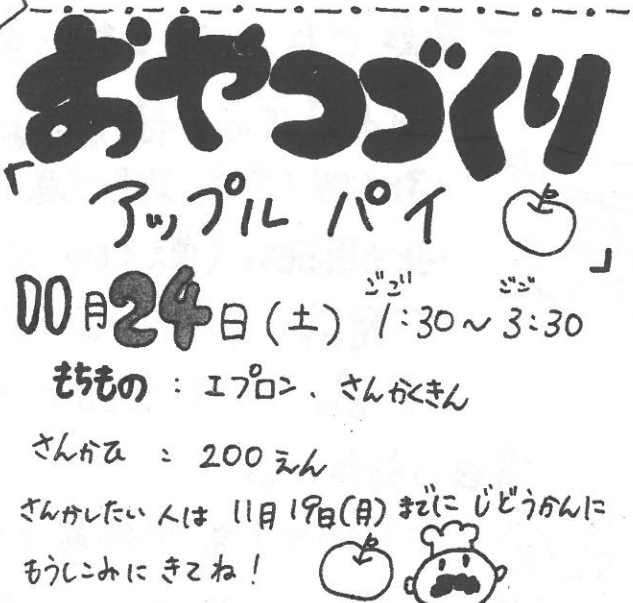 おやつづくり
「アップル パイ」
11月24日(土) ごご1:30～ごご3:30
もちもの：エプロン、さんかくきん
さんかひ：200えん
さんかしたい人は 11月19日(月)までに じどうかんに
もうしこみに きてね！